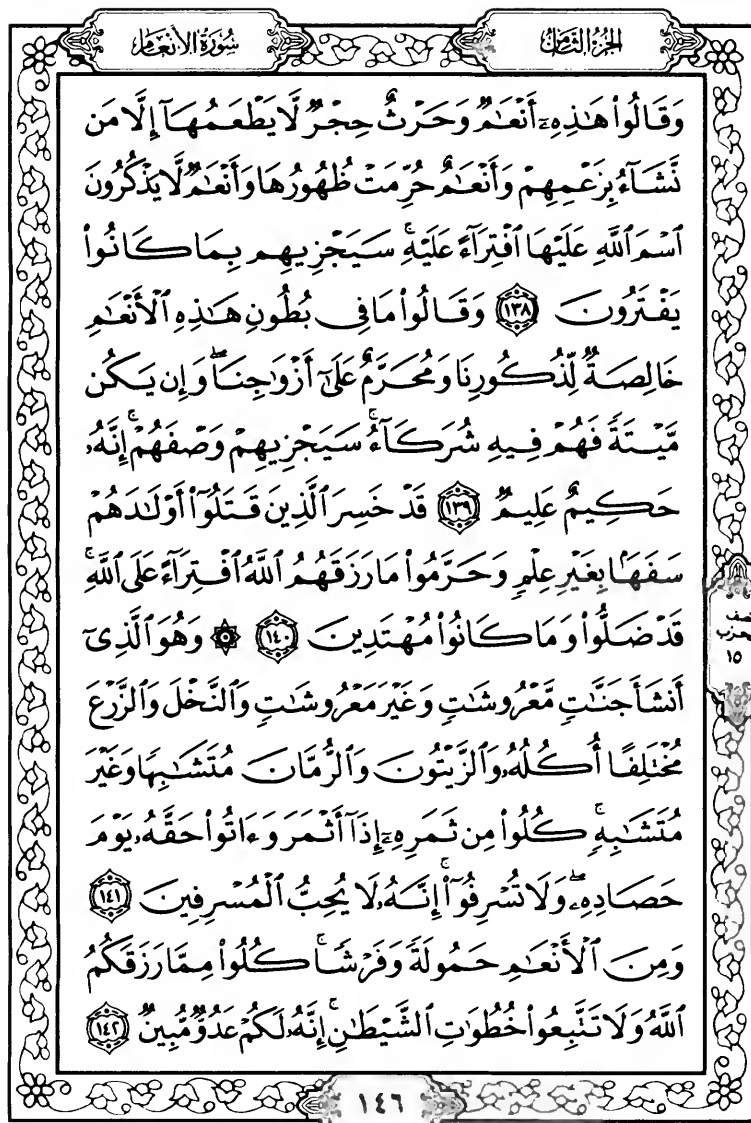 سُورَةُ الأَنْعَامِ
الجُزْءُ الثَّامِنُ
وَقَالُوا۟ هَٰذِهِۦٓ أَنْعَٰمٌ وَحَرْثٌ حِجْرٌ لَّا يَطْعَمُهَآ إِلَّا مَن
نَّشَآءُ بِزَعْمِهِمْ وَأَنْعَٰمٌ حُرِّمَتْ ظُهُورُهَا وَأَنْعَٰمٌ لَّا يَذْكُرُونَ
ٱسْمَ ٱللَّهِ عَلَيْهَا ٱفْتِرَآءً عَلَيْهِ ۚ سَيَجْزِيهِم بِمَا كَانُوا۟
يَفْتَرُونَ ١٣٨ وَقَالُوا۟ مَا فِى بُطُونِ هَٰذِهِ ٱلْأَنْعَٰمِ
خَالِصَةٌ لِّذُكُورِنَا وَمُحَرَّمٌ عَلَىٰٓ أَزْوَٰجِنَا ۖ وَإِن يَكُن
مَّيْتَةً فَهُمْ فِيهِ شُرَكَآءُ ۚ سَيَجْزِيهِمْ وَصْفَهُمْ ۚ إِنَّهُۥ
حَكِيمٌ عَلِيمٌ ١٣٩ قَدْ خَسِرَ ٱلَّذِينَ قَتَلُوٓا۟ أَوْلَٰدَهُمْ
سَفَهًۢا بِغَيْرِ عِلْمٍ وَحَرَّمُوا۟ مَا رَزَقَهُمُ ٱللَّهُ ٱفْتِرَآءً عَلَى ٱللَّهِ ۚ
قَدْ ضَلُّوا۟ وَمَا كَانُوا۟ مُهْتَدِينَ ١٤٠ ۞ وَهُوَ ٱلَّذِىٓ
أَنشَأَ جَنَّٰتٍ مَّعْرُوشَٰتٍ وَغَيْرَ مَعْرُوشَٰتٍ وَٱلنَّخْلَ وَٱلزَّرْعَ
مُخْتَلِفًا أُكُلُهُۥ وَٱلزَّيْتُونَ وَٱلرُّمَّانَ مُتَشَٰبِهًا وَغَيْرَ
مُتَشَٰبِهٍ ۚ كُلُوا۟ مِن ثَمَرِهِۦٓ إِذَآ أَثْمَرَ وَءَاتُوا۟ حَقَّهُۥ يَوْمَ
حَصَادِهِۦ ۖ وَلَا تُسْرِفُوٓا۟ ۚ إِنَّهُۥ لَا يُحِبُّ ٱلْمُسْرِفِينَ ١٤١
وَمِنَ ٱلْأَنْعَٰمِ حَمُولَةً وَفَرْشًا ۚ كُلُوا۟ مِمَّا رَزَقَكُمُ
ٱللَّهُ وَلَا تَتَّبِعُوا۟ خُطُوَٰتِ ٱلشَّيْطَٰنِ ۚ إِنَّهُۥ لَكُمْ عَدُوٌّ مُّبِينٌ ١٤٢
١٥
١٤٦